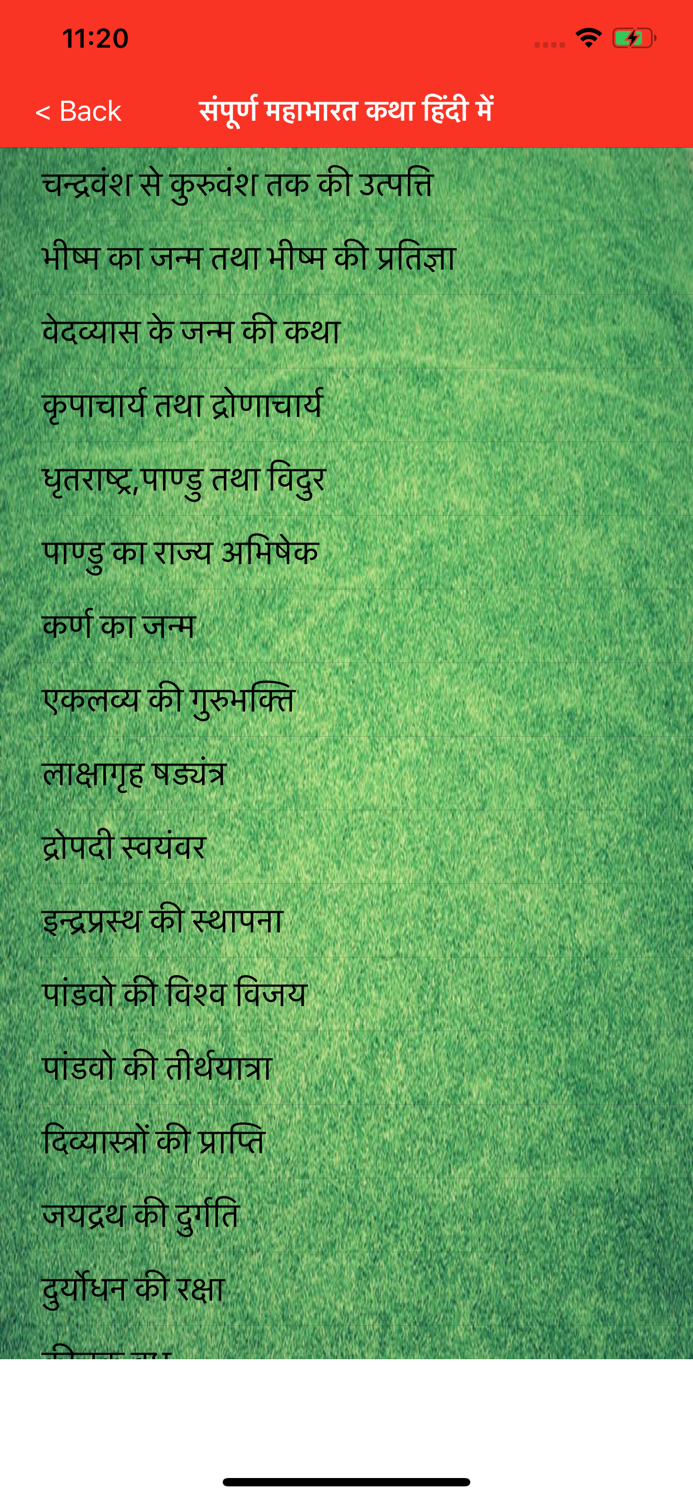 11:20
< Back संपूर्ण महाभारत कथा हिंदी में
चन्द्रवंश से कुरुवंश तक की उत्पत्ति
भीष्म का जन्म तथा भीष्म की प्रतिज्ञा
वेदव्यास के जन्म की कथा
कृपाचार्य तथा द्रोणाचार्य
धृतराष्ट्र,पाण्डु तथा विदुर
पाण्डु का राज्य अभिषेक
कर्ण का जन्म
एकलव्य की गुरुभक्ति
लाक्षागृह षड्यंत्र
द्रोपदी स्वयंवर
इन्द्रप्रस्थ की स्थापना
पांडवो की विश्व विजय
पांडवो की तीर्थयात्रा
दिव्यास्त्रों की प्राप्ति
जयद्रथ की दुर्गति
दुर्योधन की रक्षा